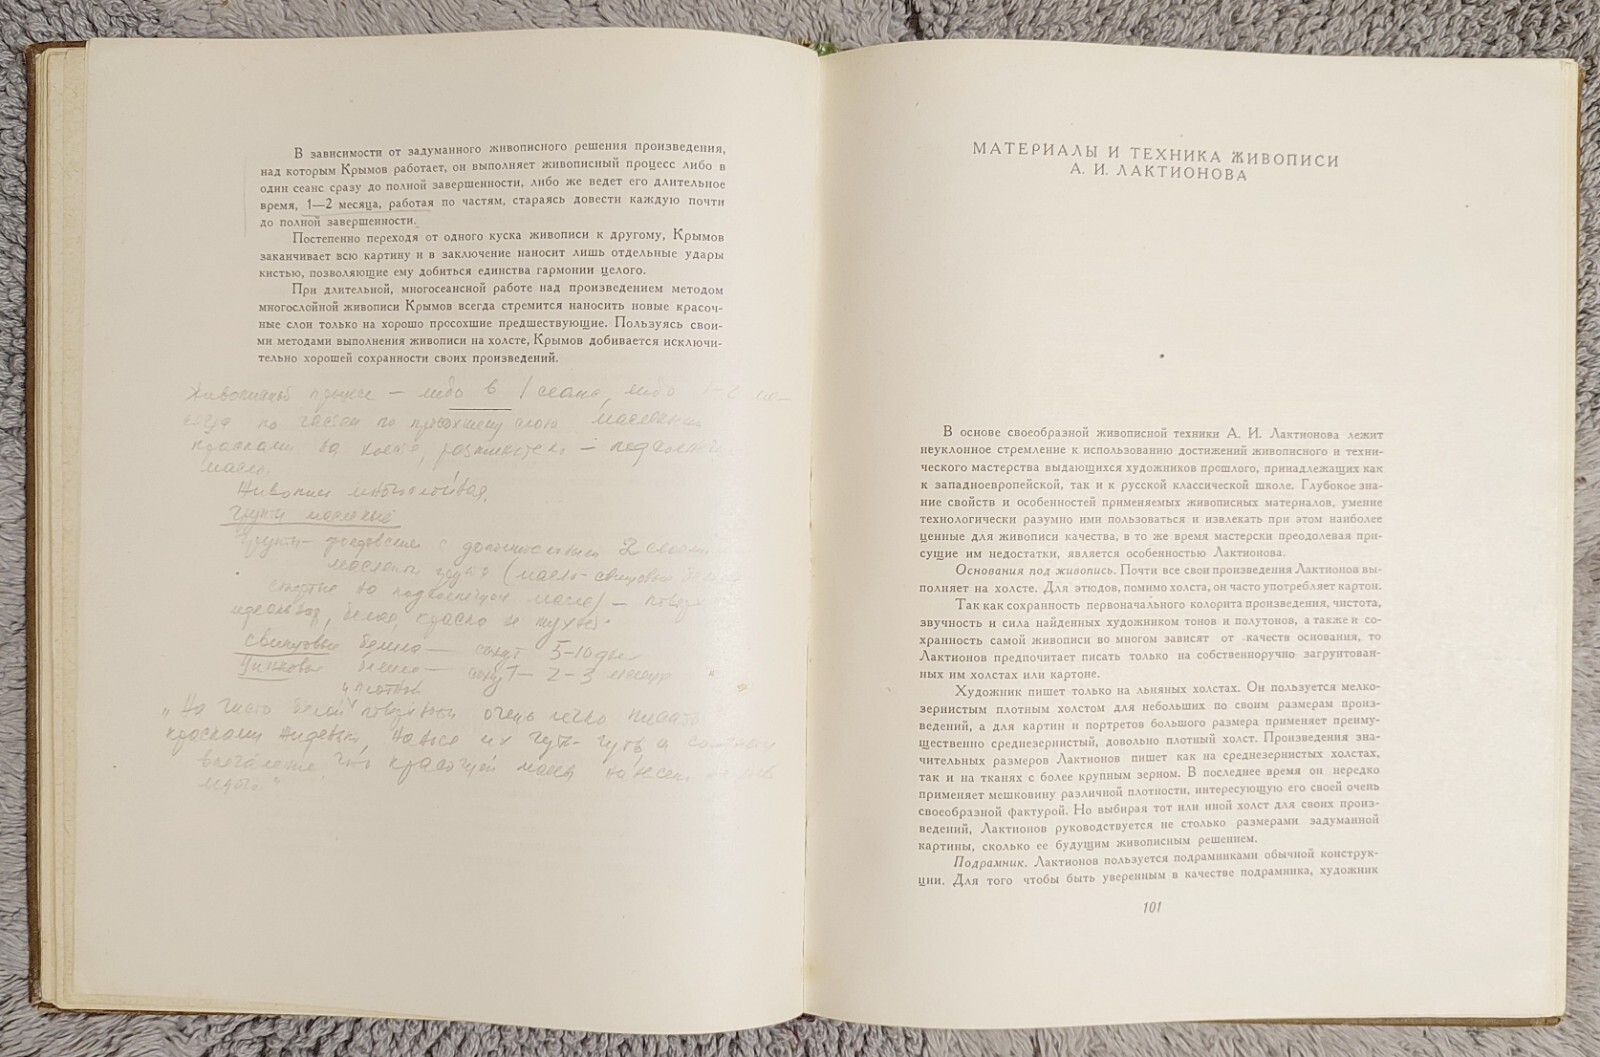 В зависимости от задуманного живописного решения произведения,
над которым Крымов работает, он выполняет живописный процесс либо в
один сеанс сразу до полной завершенности, либо же ведет его длительное
время, 1—2 месяца, работая по частям, стараясь довести каждую почти
до полной завершенности.
Постепенно переходя от одного куска живописи к другому, Крымов
заканчивает всю картину и в заключение наносит лишь отдельные удары
кистью, позволяющие ему добиться единства гармонии целого.
При длительной, многосеансной работе над произведением методом
многослойной живописи Крымов всегда стремится наносить новые красоч-
ные слои только на хорошо просохшие предшествующие. Пользуясь свои-
ми методами выполнения живописи на холсте, Крымов добивается исключи-
тельно хорошей сохранности своих произведений.
процесс — либо в 1 сеанс, либо 1-2 ме-
по частям по просохшему слою масляными
красками на холсте, разжижитель —
масло.
Живопись многослойная.
Грунт масляный
Грунт — с 2
масляного грунта (масло - свинцовые белила
на масле) —
белая,
Свинцовые белила — сохнут 5-10 дней
Цинковые белила — сохнут — 2-3 месяца
и плотной
„На чисто белой поверхности очень легко писать
красками жидкими, нанося их чуть-чуть а
впечатление, что
много."
МАТЕРИАЛЫ И ТЕХНИКА ЖИВОПИСИ
А. И. ЛАКТИОНОВА
В основе своеобразной живописной техники А. И. Лактионова лежит
неуклонное стремление к использованию достижений живописного и техни-
ческого мастерства выдающихся художников прошлого, принадлежащих как
к западноевропейской, так и к русской классической школе. Глубокое зна-
ние свойств и особенностей применяемых живописных материалов, умение
технологически разумно ими пользоваться и извлекать при этом наиболее
ценные для живописи качества, в то же время мастерски преодолевая при-
сущие им недостатки, является особенностью Лактионова.
Основания под живопись. Почти все свои произведения Лактионов вы-
полняет на холсте. Для этюдов, помимо холста, он часто употребляет картон.
Так как сохранность первоначального колорита произведения, чистота,
звучность и сила найденных художником тонов и полутонов, а также и со-
хранность самой живописи во многом зависят от качеств основания, то
Лактионов предпочитает писать только на собственноручно загрунтован-
ных им холстах или картоне.
Художник пишет только на льняных холстах. Он пользуется мелко-
зернистым плотным холстом для небольших по своим размерам произ-
ведений, а для картин и портретов большого размера применяет преиму-
щественно среднезернистый, довольно плотный холст. Произведения зна-
чительных размеров Лактионов пишет как на среднезернистых холстах,
так и на тканях с более крупным зерном. В последнее время он нередко
применяет мешковину различной плотности, интересующую его своей очень
своеобразной фактурой. Но выбирая тот или иной холст для своих произ-
ведений, Лактионов руководствуется не столько размерами задуманной
картины, сколько ее будущим живописным решением.
Подрамник. Лактионов пользуется подрамниками обычной конструк-
ции. Для того чтобы быть уверенным в качестве подрамника, художник
101